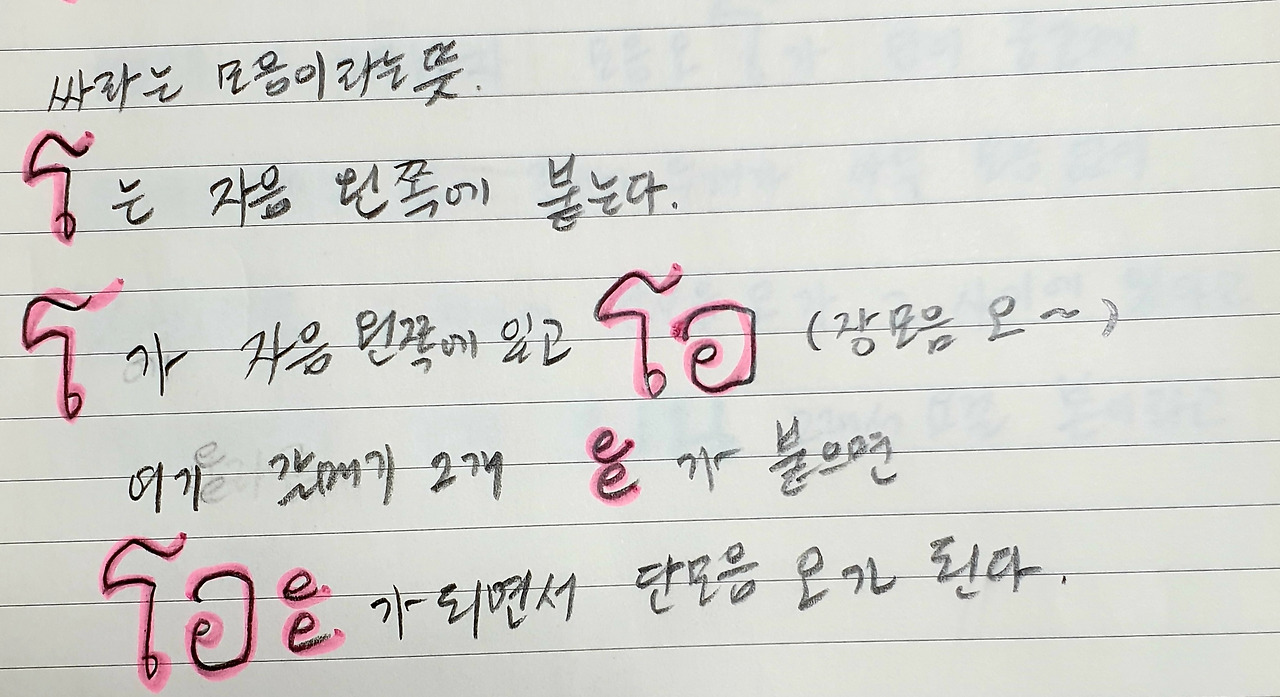 싸라는 모음이라는 뜻.
โ 는 자음 왼쪽에 붙는다.
โ 가 자음 왼쪽에 있고 โอ (장모음 오~)
여기 갈매기 2개 ะ 가 붙으면
โอะ 가 되면서 단모음 오가 된다.